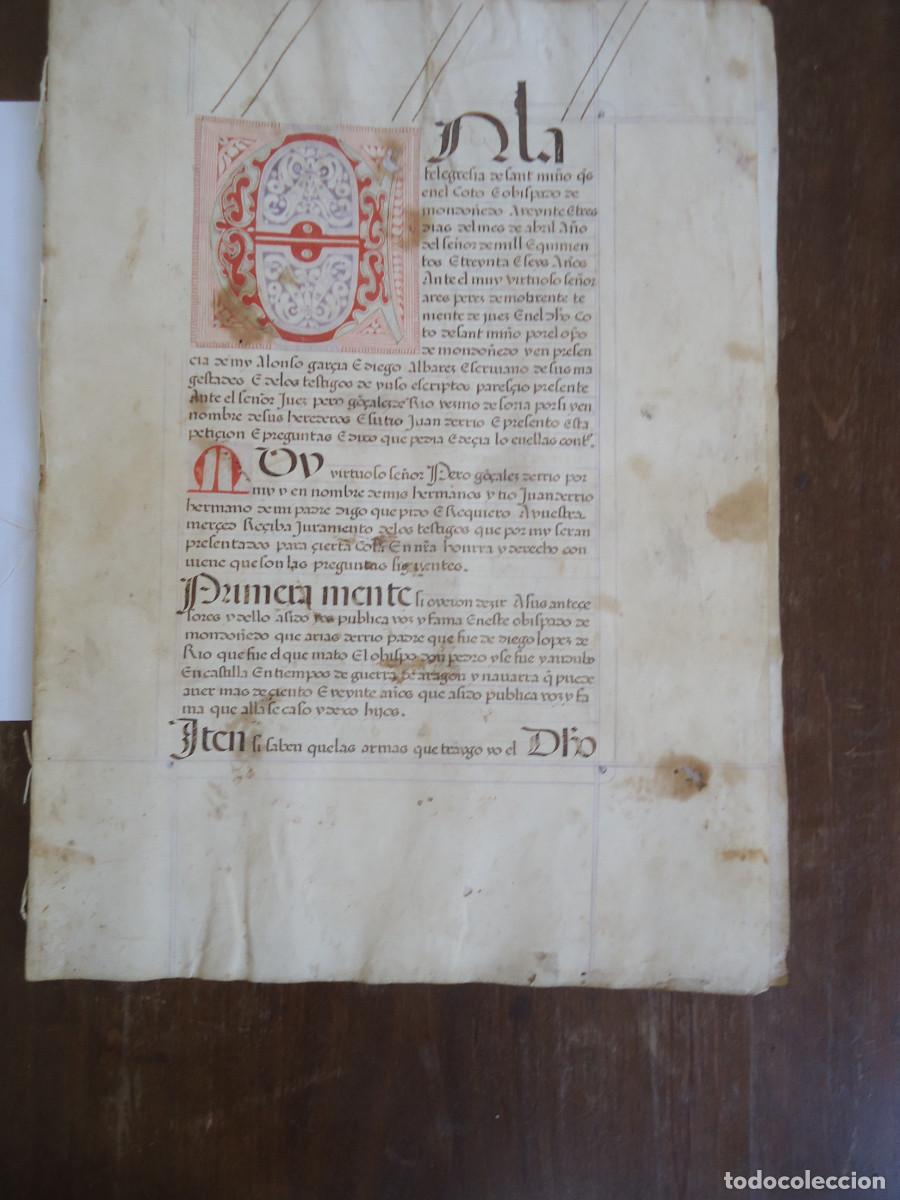 EN la
felegresia de sant miño q̃ es
en el Coto E obispado de
mondoñedo A veynte E tres
dias del mes de abril Año
del señor de mill E quinien
tos E treynta E seys Años
Ante el muy virtuoso señor
ares peres de mobrente te
niente de juez En el dh̃o Co
to de sant miño por el ob̃po
de mondoñedo y en presen
cia de my Alonso garçia E diego Albarez Escriuano de sus ma
gestades E de los testigos de yuso escriptos paresçio presente
Ante el señor Juez pero gõçales de Rio vezino de soria por si y en
nombre de sus herederos E su tio Juan derrio E presento Esta
petiçion E preguntas E dixo que pedia E deçia lo en ellas cont̃o
MUy virtuoso señor Pero gõçalez derrio por
my y en nombre de mis hermanos y tio Juan derrio
hermano de mi padre digo que pido E Requiero A vuestra
merçed Reçiba Juramento de los testigos que por my seran
presentados para çierta Cosa En nr̃a honrra y derecho con
uiene que son las preguntas siguientes.
Primera mente si oyeron dezir A sus antece
sores y dello A sido publica voz y fama En este obispado de
mondoñedo que arias derrio padre que fue de diego lopez de
Rio que fue el que mato El obispo don pedro y se fue
En castilla En tiempos de guerra de aragon y navarra q̃ puede
aver mas de çiento E veynte años que a sido publica voz y fa
ma que alla se caso y dexo hijos.
Iten si saben que las armas que traygo yo el Dh̃o
todocoleccion